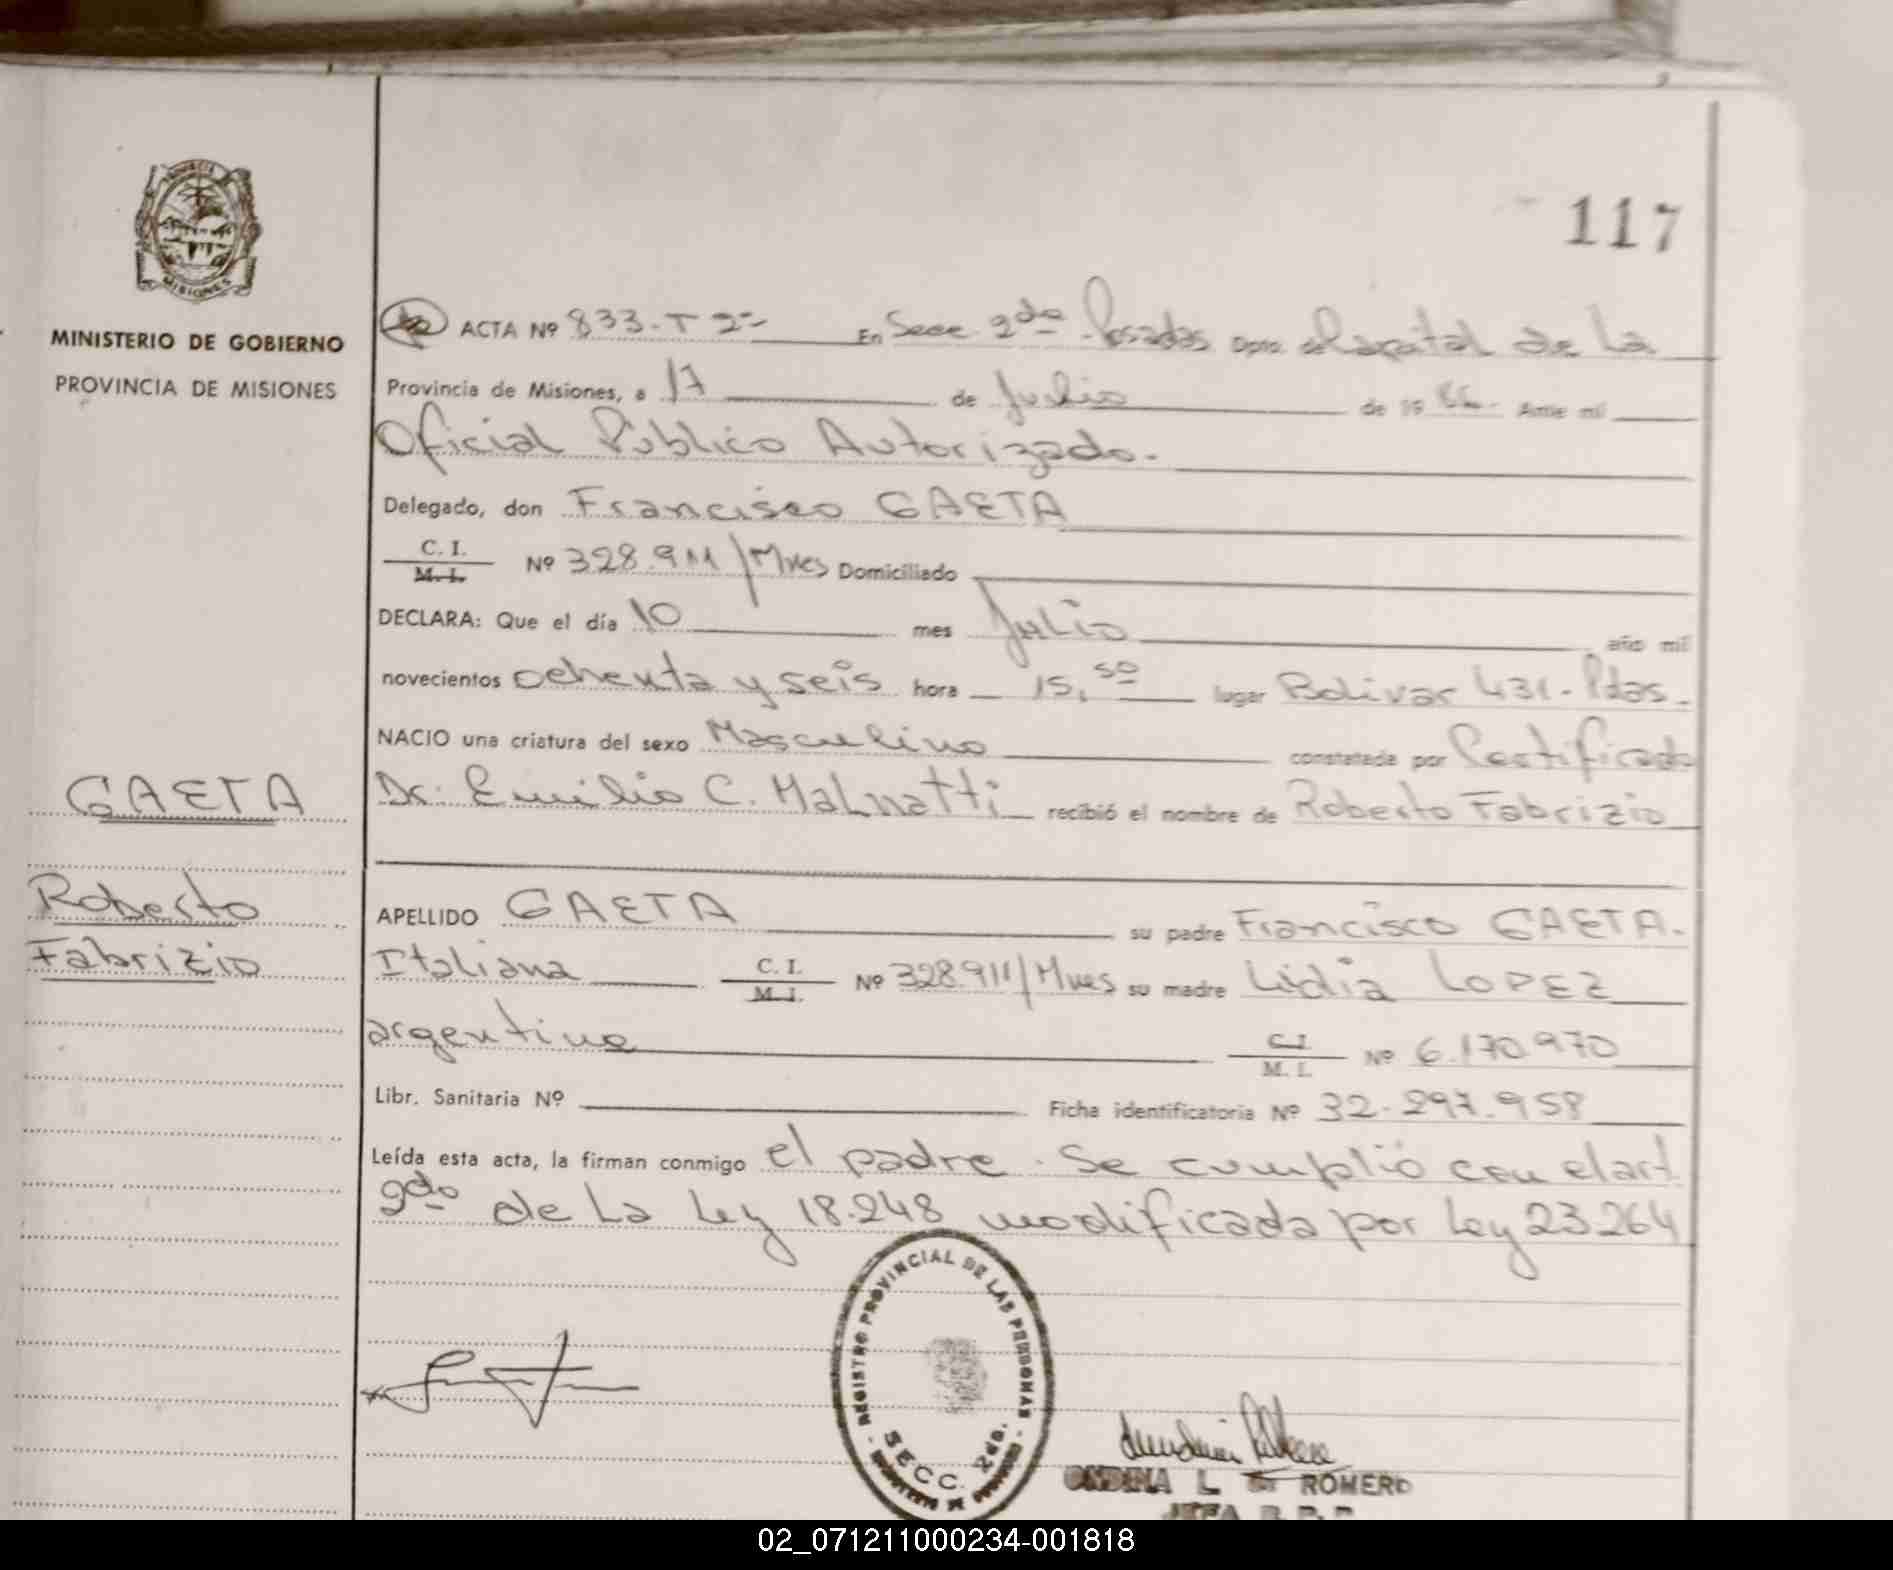 117
MISIONES
MINISTERIO DE GOBIERNO
PROVINCIA DE MISIONES
ACTA Nº 833-T 2º- En Secc. 2da Posadas Dpto. de Capital de La
Provincia de Misiones, a 17 de Julio de 19 86. Ante mí
Oficial Público Autorizado.
Delegado, don Francisco GAETA
C. I.
M. I.
Nº 328.911/Mnes Domiciliado
DECLARA: Que el día 10 mes Julio año mil
novecientos ochenta y seis hora 15,50 lugar Bolivar 431- Pdas.
NACIO una criatura del sexo Masculino constatada por Certificado
Dr. Emilio C. Malnatti recibió el nombre de Roberto Fabrizio
GAETA
Roberto
Fabrizio
APELLIDO GAETA su padre Francisco GAETA.
Italiana C. I. M. I. Nº 328.911/Mnes su madre Lidia LOPEZ
argentina C. I. M. I. Nº 6.170.970
Libr. Sanitaria Nº Ficha identificatoria Nº 32.297.958
Leída esta acta, la firman conmigo el padre. Se cumplió con el art.
2do de La Ley 18.248 modificada por Ley 23.264
REGISTRO PROVINCIAL DE LAS PERSONAS
SECC. 2da.
ONDINA L. ROMERO
JEFA R. P. P.
02_071211000234-001818